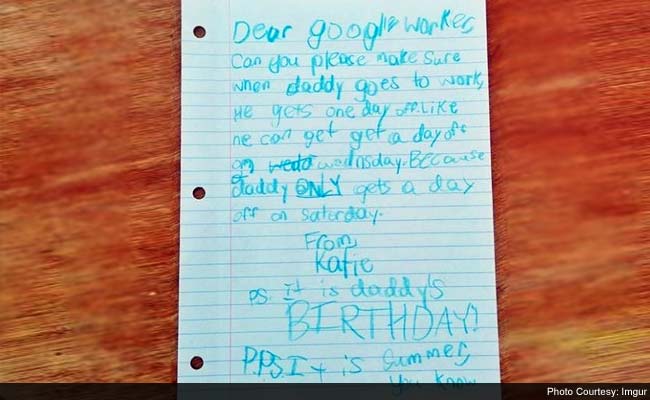 Dear google worker,
Can you please make sure
when daddy goes to work,
He gets one day off. Like
he can get get a day off
on wedd wednsday. BECause
daddy ONLY gets a day
off on Saturday.
From,
Katie
P.S. It is daddy's
BIRTHDAY!
P.P.S. It is summer,
you know
Photo Courtesy: Imgur